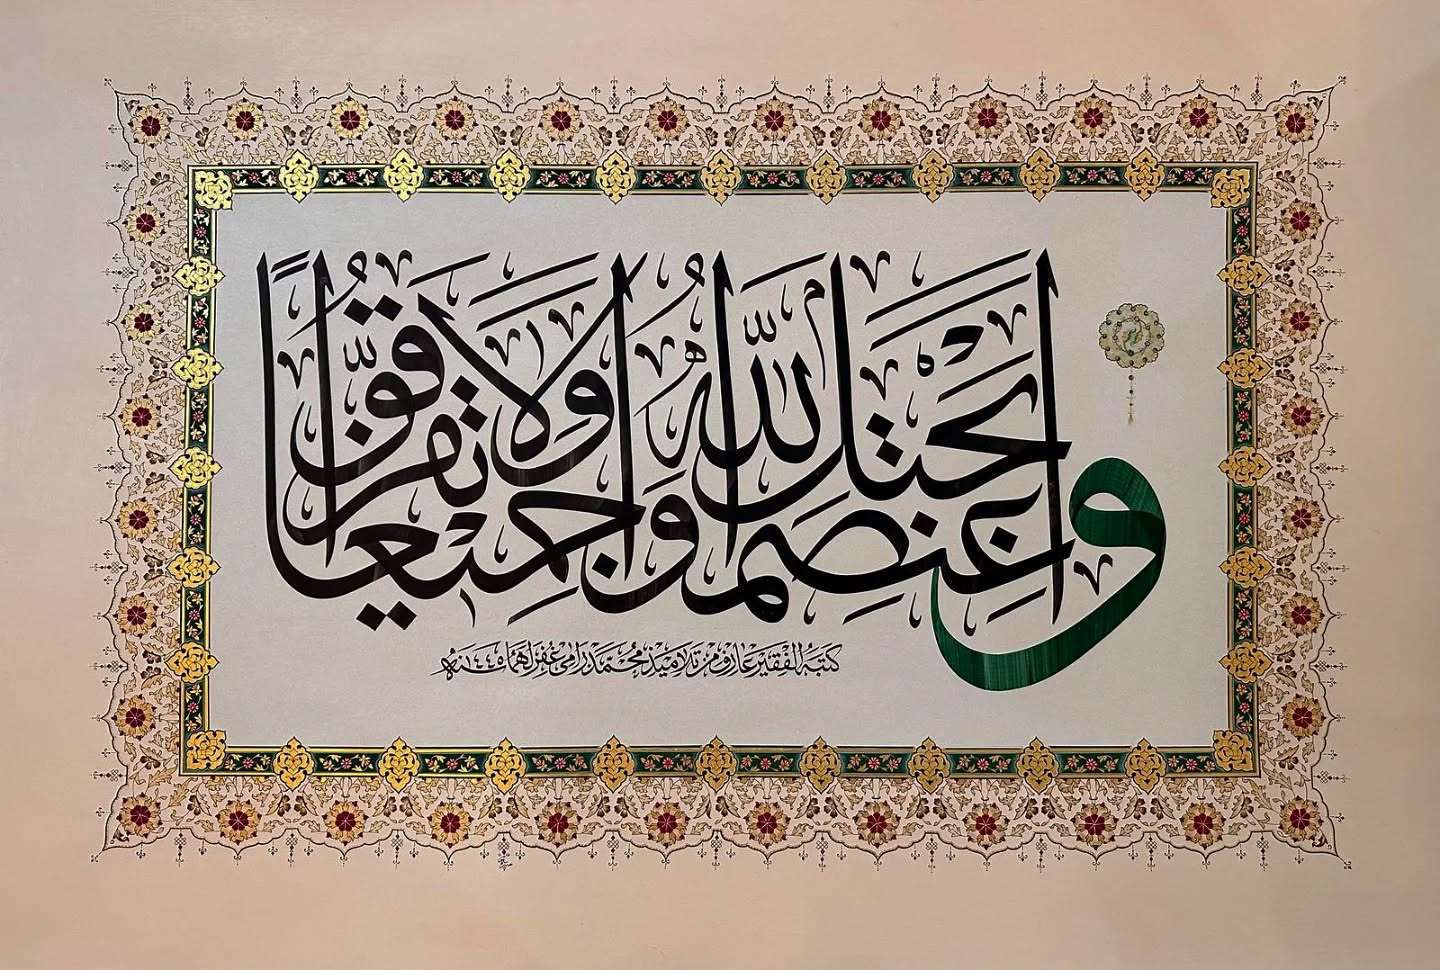 واعتصموا بحبل الله جميعا ولا تفرقوا
كتبه الفقير عارف من تلاميذ محمد رامي غفر لهما سنة ١٤٤٥